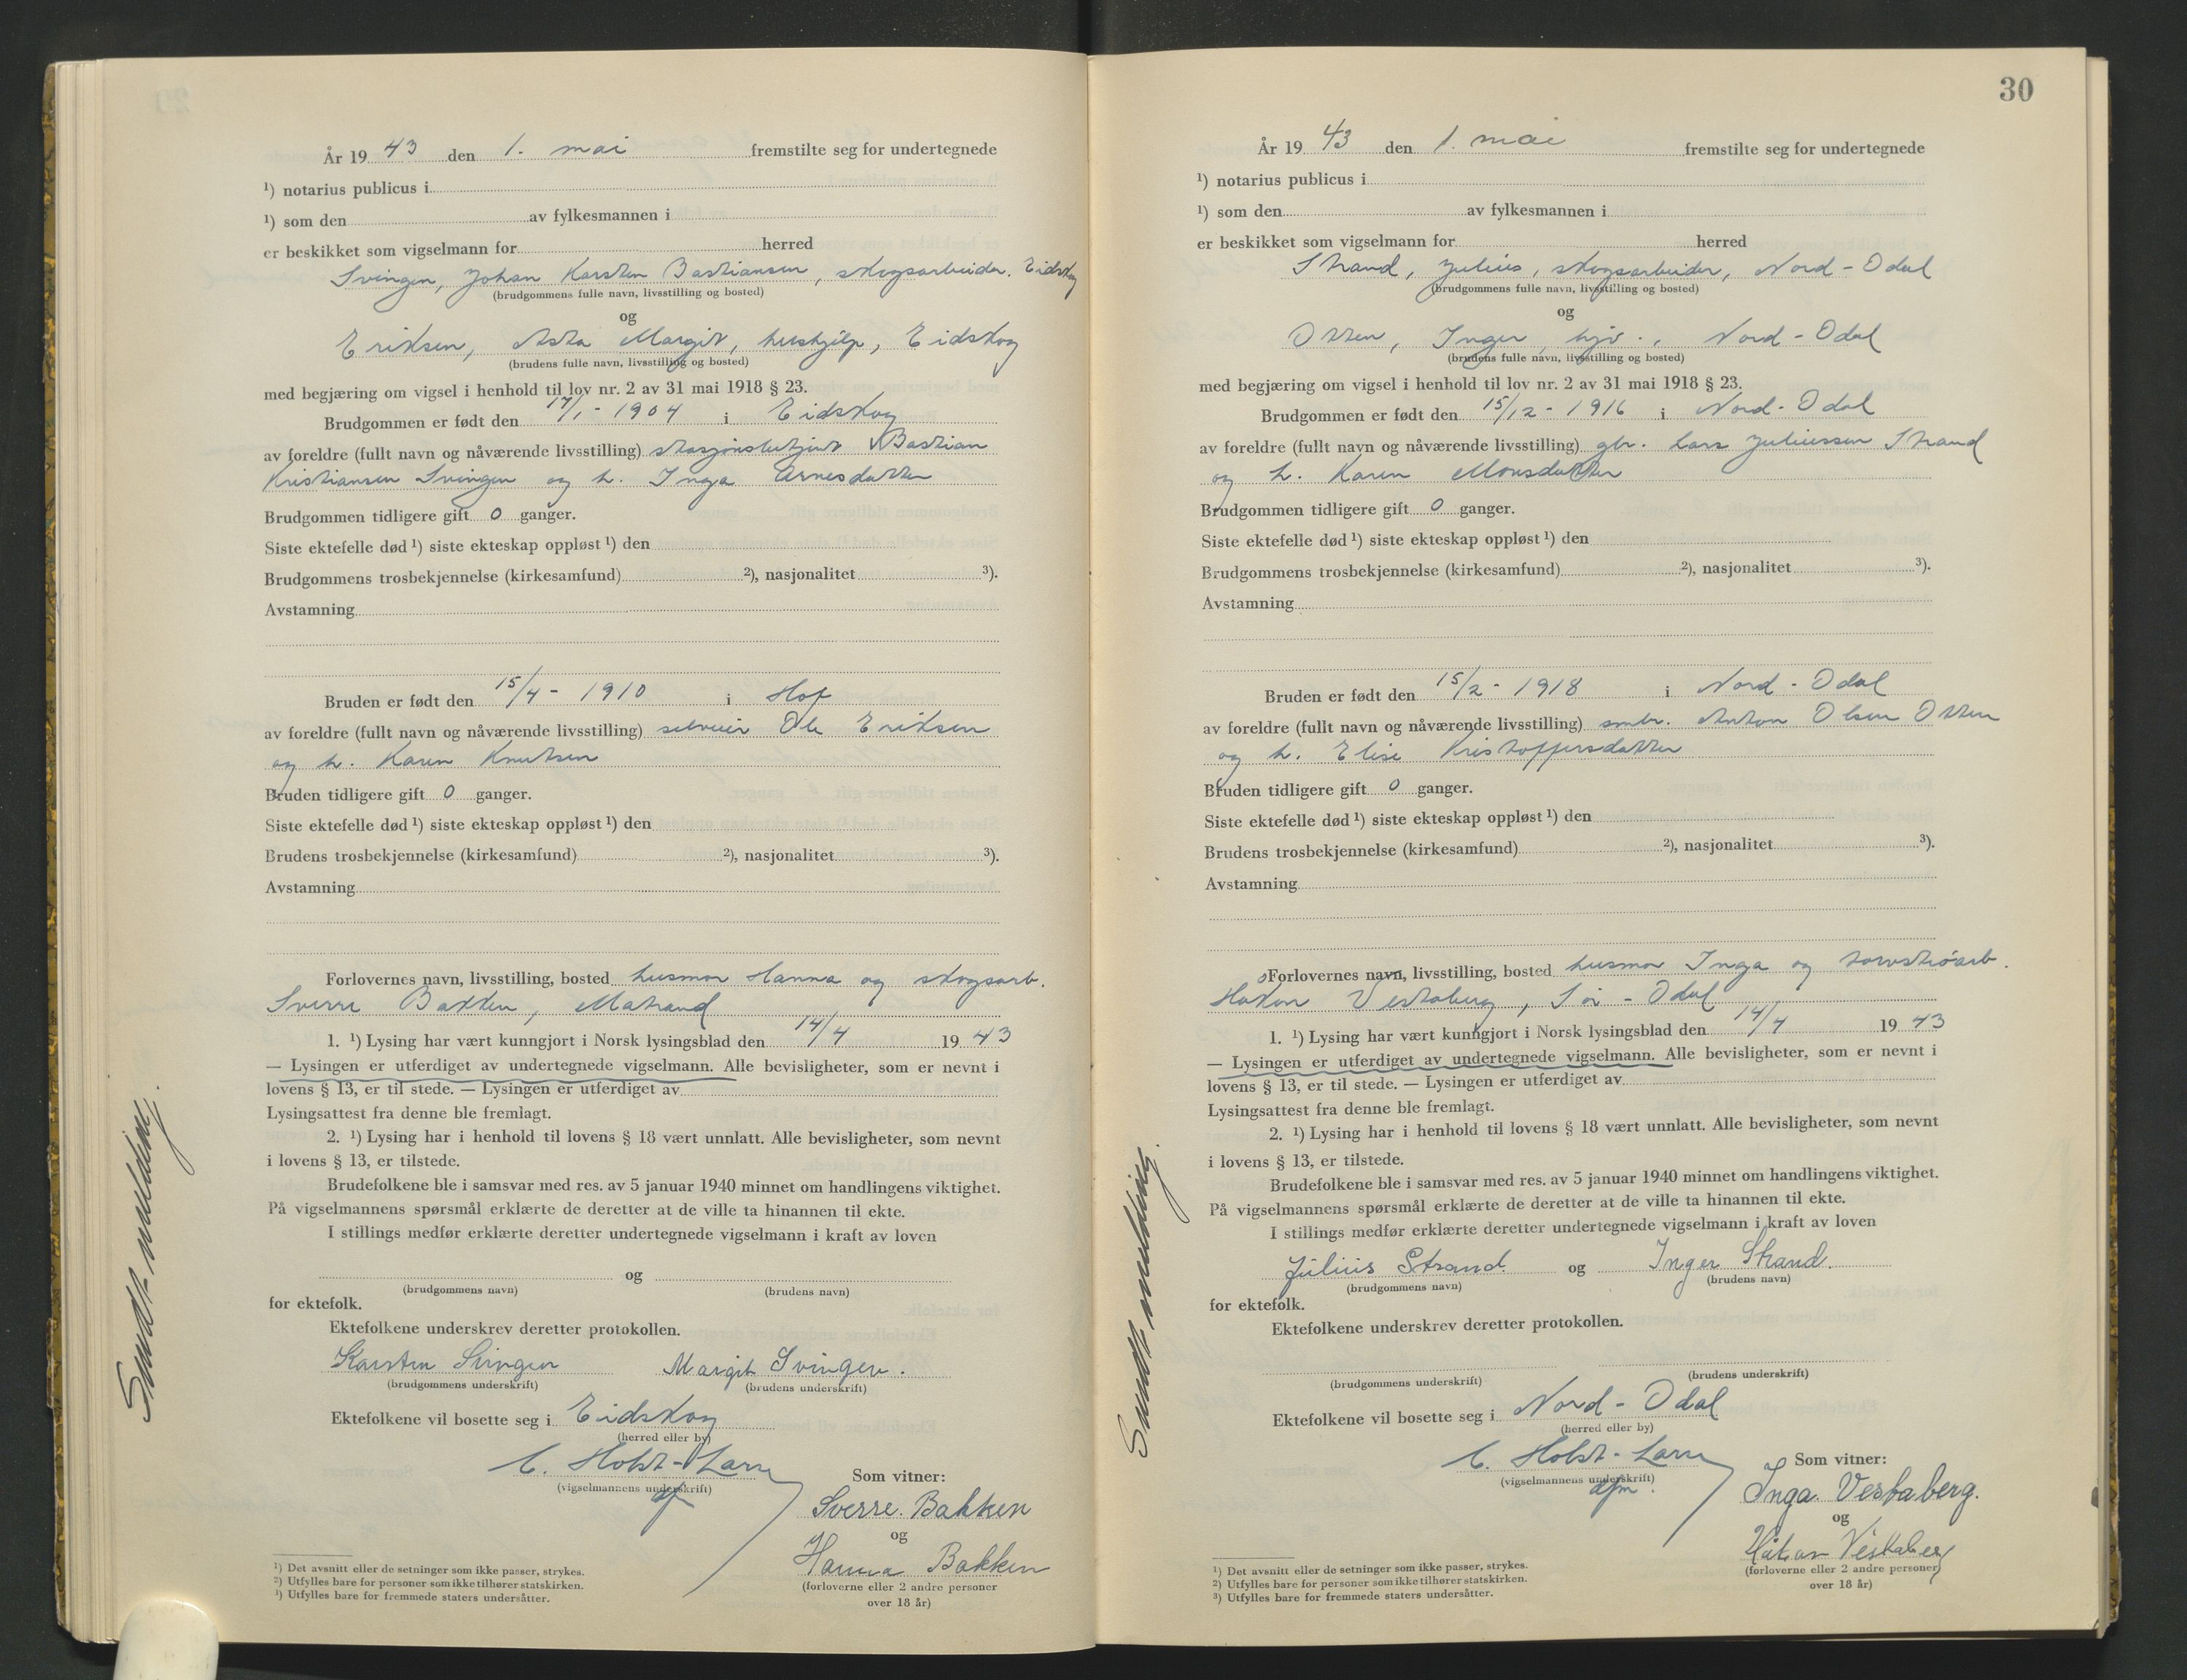 År 19 43 den 1. mai fremstilte seg for undertegnede
¹) notarius publicus i
¹) som den av fylkesmannen i
er beskikket som vigselmann for herred
Svingen, Johan Karsten Bastiansen, skogsarbeider, Eidskog
(brudgommens fulle navn, livsstilling og bosted)
og
Eriksen, Asta Margit, hushjelp, Eidskog
(brudens fulle navn, livsstilling og bosted)
med begjæring om vigsel i henhold til lov nr. 2 av 31 mai 1918 § 23.
Brudgommen er født den 17/1 - 1904 i Eidskog
av foreldre (fullt navn og nåværende livsstilling) stasjonsbetjent Bastian
Kristiansen Svingen og h. Inga Arnesdatter
Brudgommen tidligere gift 0 ganger.
Siste ektefelle død ¹) siste ekteskap oppløst ¹) den
Brudgommens trosbekjennelse (kirkesamfund) ²), nasjonalitet ³).
Avstamning
Bruden er født den 15/4 - 1910 i Hof
av foreldre (fullt navn og nåværende livsstilling) selveier Ole Eriksen
og h. Karen Knutsen
Bruden tidligere gift 0 ganger.
Siste ektefelle død ¹) siste ekteskap oppløst ¹) den
Brudens trosbekjennelse (kirkesamfund) ²), nasjonalitet ³).
Avstamning
Forlovernes navn, livsstilling, bosted husmor Hanna og skogsarb.
Sverre Bakken, Matrand
1. ¹) Lysing har vært kunngjort i Norsk lysingsblad den 14/4 19 43
— Lysingen er utferdiget av undertegnede vigselmann. Alle bevisligheter, som er nevnt i
lovens § 13, er til stede. — Lysingen er utferdiget av
Lysingsattest fra denne ble fremlagt.
2. ¹) Lysing har i henhold til lovens § 18 vært unnlatt. Alle bevisligheter, som nevnt
i lovens § 13, er tilstede.
Brudefolkene ble i samsvar med res. av 5 januar 1940 minnet om handlingens viktighet.
På vigselmannens spørsmål erklærte de deretter at de ville ta hinannen til ekte.
I stillings medfør erklærte deretter undertegnede vigselmann i kraft av loven
og
(brudgommens navn) (brudens navn)
for ektefolk.
Ektefolkene underskrev deretter protokollen.
Karsten Svingen Margit Svingen.
(brudgommens underskrift) (brudens underskrift)
Ektefolkene vil bosette seg i Eidskog
(herred eller by)
C. Holst-Larsen
(vigselmannens underskrift)
Som vitner:
Sverre. Bakken
og
Hanna Bakken
(forloverne eller 2 andre personer
over 18 år)
¹) Det avsnitt eller de setninger som ikke passer, strykes.
²) Utfylles bare for personer som ikke tilhører statskirken.
³) Utfylles bare for fremmede staters undersåtter.
Sendt melding.
30
År 19 43 den 1. mai fremstilte seg for undertegnede
¹) notarius publicus i
¹) som den av fylkesmannen i
er beskikket som vigselmann for herred
Strand, Julius, skogsarbeider, Nord-Odal
(brudgommens fulle navn, livsstilling og bosted)
og
Otten, Inger, hjv., Nord-Odal
(brudens fulle navn, livsstilling og bosted)
med begjæring om vigsel i henhold til lov nr. 2 av 31 mai 1918 § 23.
Brudgommen er født den 15/12 - 1916 i Nord-Odal
av foreldre (fullt navn og nåværende livsstilling) gbr. Lars Juliussen Strand
og h. Karen Monsdatter
Brudgommen tidligere gift 0 ganger.
Siste ektefelle død ¹) siste ekteskap oppløst ¹) den
Brudgommens trosbekjennelse (kirkesamfund) ²), nasjonalitet ³).
Avstamning
Bruden er født den 15/2 - 1918 i Nord-Odal
av foreldre (fullt navn og nåværende livsstilling) smbr. Anton Olsen Otten
og h. Elise Kristoffersdatter
Bruden tidligere gift 0 ganger.
Siste ektefelle død ¹) siste ekteskap oppløst ¹) den
Brudens trosbekjennelse (kirkesamfund) ²), nasjonalitet ³).
Avstamning
Forlovernes navn, livsstilling, bosted husmor Inga og torvstrøarb.
Håkon Vestaberg, Sør-Odal
1. ¹) Lysing har vært kunngjort i Norsk lysingsblad den 14/4 19 43
— Lysingen er utferdiget av undertegnede vigselmann. Alle bevisligheter, som er nevnt i
lovens § 13, er til stede. — Lysingen er utferdiget av
Lysingsattest fra denne ble fremlagt.
2. ¹) Lysing har i henhold til lovens § 18 vært unnlatt. Alle bevisligheter, som nevnt
i lovens § 13, er tilstede.
Brudefolkene ble i samsvar med res. av 5 januar 1940 minnet om handlingens viktighet.
På vigselmannens spørsmål erklærte de deretter at de ville ta hinannen til ekte.
I stillings medfør erklærte deretter undertegnede vigselmann i kraft av loven
Julius Strand. og Inger Strand.
(brudgommens navn) (brudens navn)
for ektefolk.
Ektefolkene underskrev deretter protokollen.
(brudgommens underskrift) (brudens underskrift)
Ektefolkene vil bosette seg i Nord-Odal
(herred eller by)
C. Holst-Larsen
(vigselmannens underskrift)
dfm.
Som vitner:
Inga. Vestaberg.
og
Håkon Vestaberg
(forloverne eller 2 andre personer
over 18 år)
¹) Det avsnitt eller de setninger som ikke passer, strykes.
²) Utfylles bare for personer som ikke tilhører statskirken.
³) Utfylles bare for fremmede staters undersåtter.
Sendt melding.